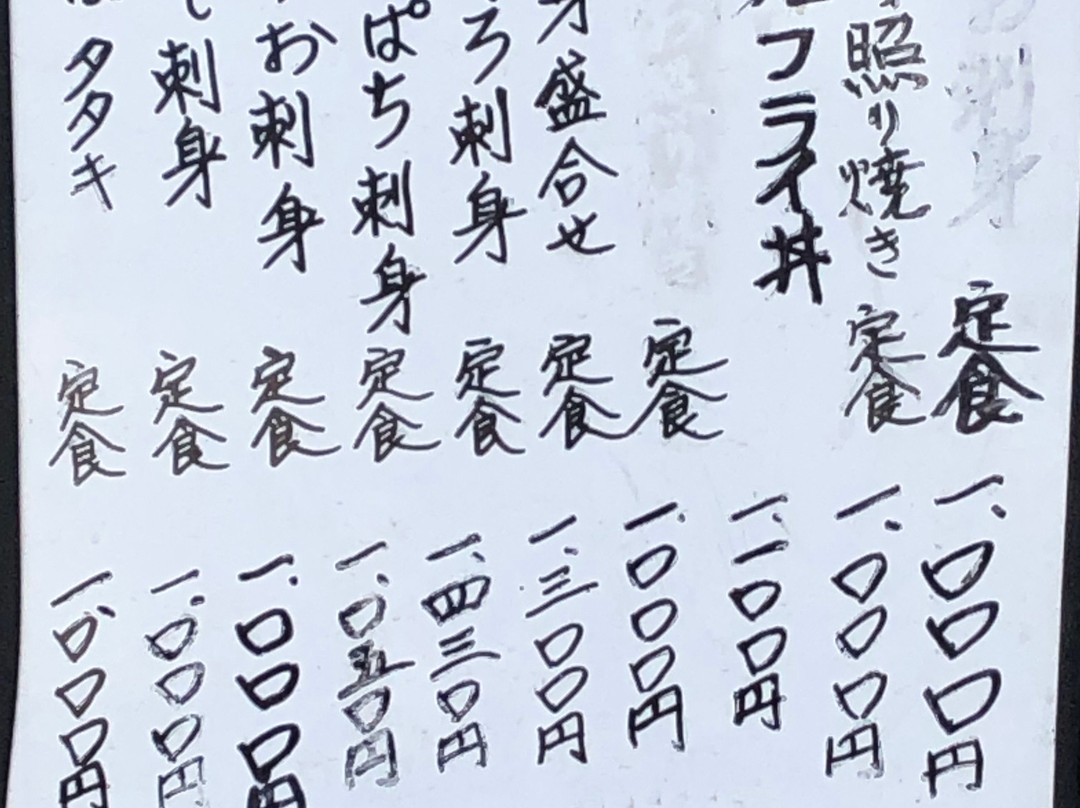 刺身 定食 一、〇〇〇円
照り焼き 定食 一、〇〇〇円
フライ丼 一、一〇〇円
定食 一、〇〇〇円
盛合せ 定食 一、三〇〇円
ろ刺身 定食 一、四三〇円
ぱち刺身 定食 一、〇五〇円
お刺身 定食 一、〇〇〇円
刺身 定食 一、〇〇〇円
タタキ 定食 一、〇〇〇円